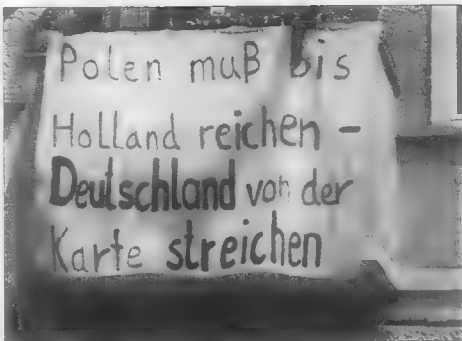 Polen muß bis
Holland reichen -
Deutschland von der
Karte streichen